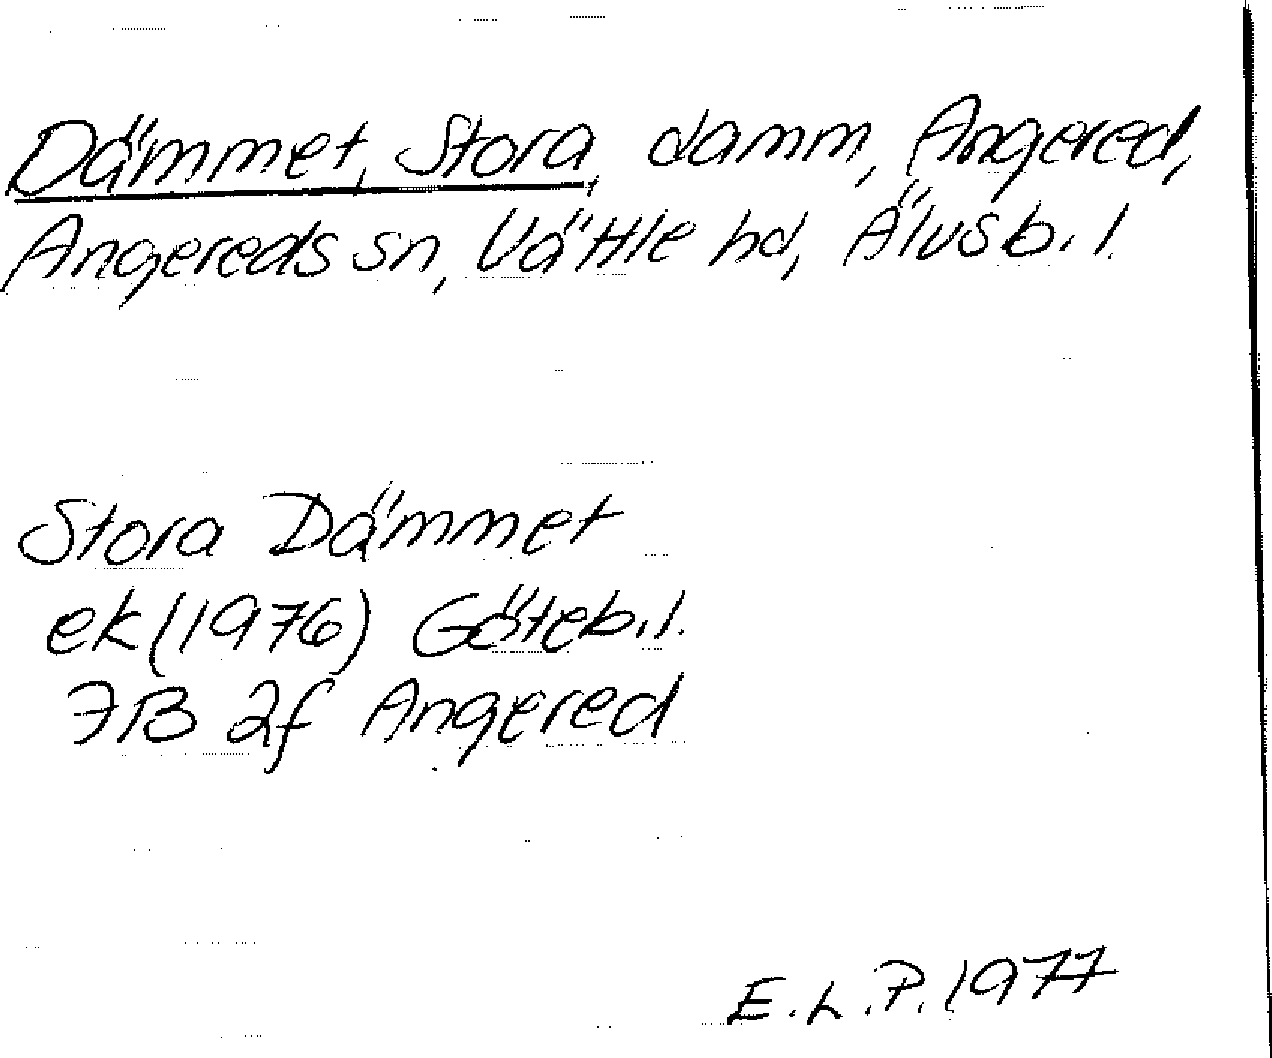 Dämmet, Stora, damm, Angered,
Angereds sn, Vättle hd, Älvsb. l.
Stora Dämmet
ek (1976) Göteb. l.
7B 2f Angered
E.L.P. 1977